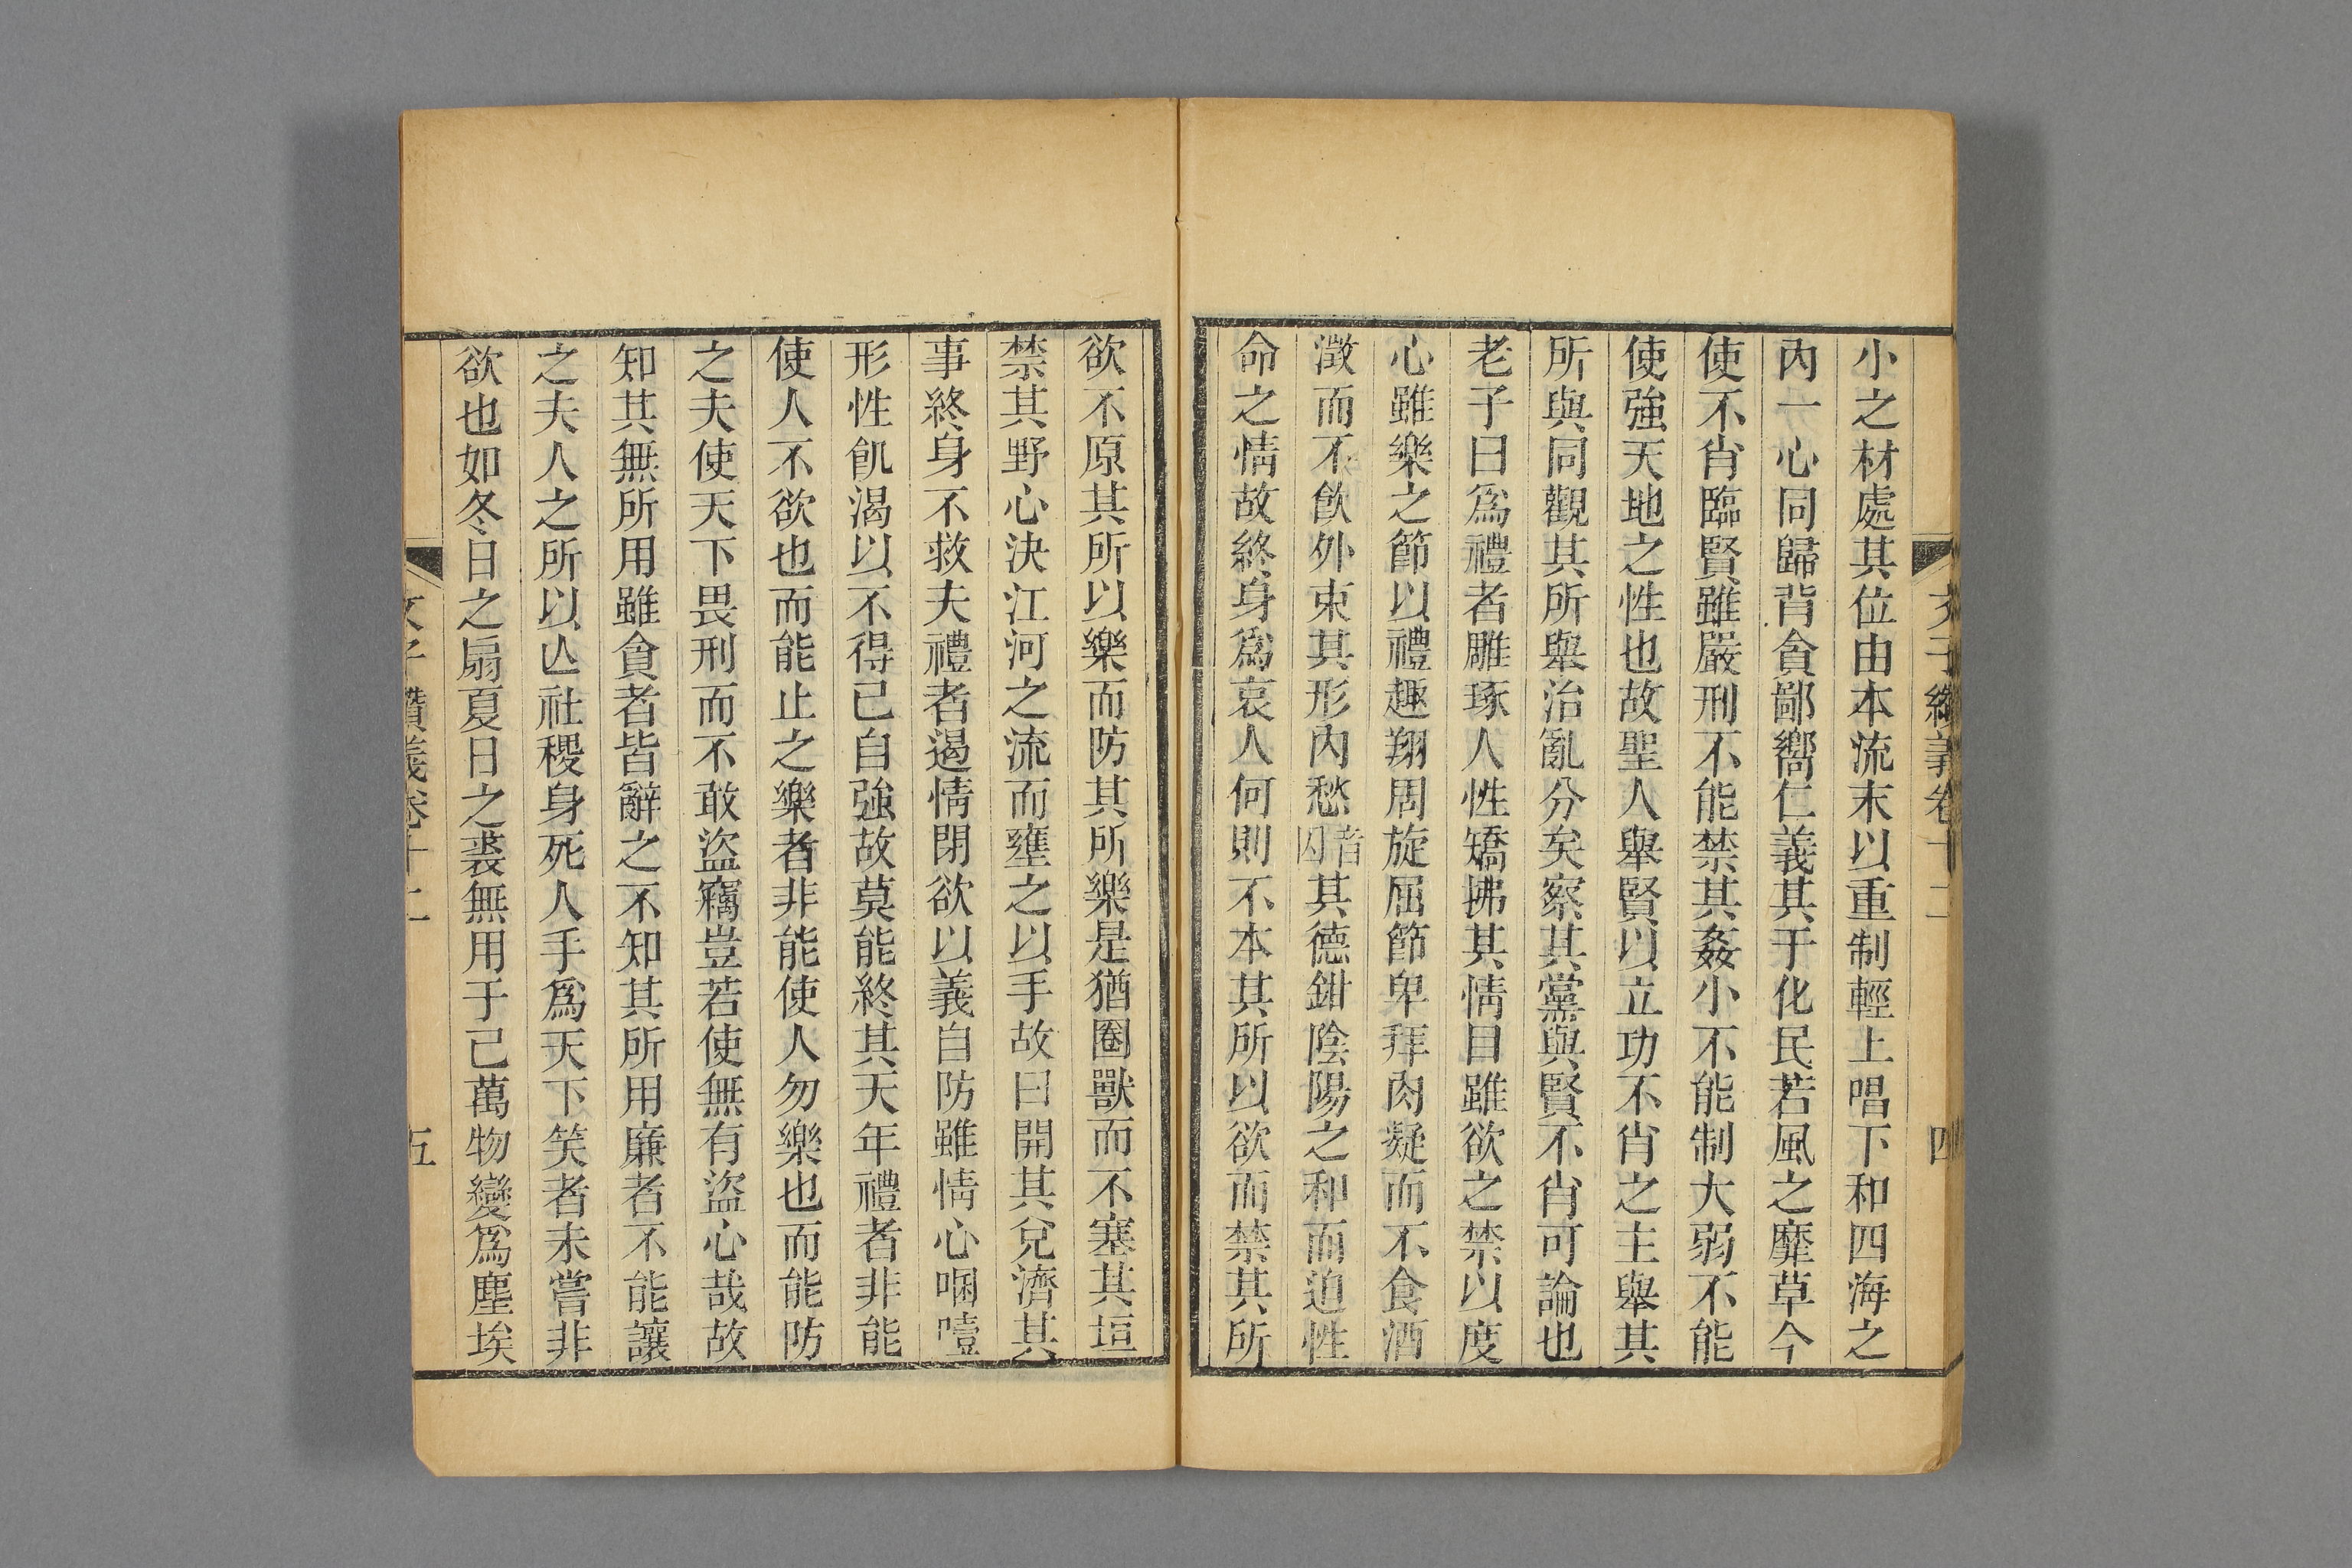 小之材處其位由本流末以重制輕上唱下和四海之
內一心同歸背貪鄙嚮仁義其于化民若風之靡草今
使不肖臨賢雖嚴刑不能禁其姦小不能制大弱不能
使強天地之性也故聖人舉賢以立功不肖之主舉其
所與同觀其所舉治亂分矣察其黨與賢不肖可論也
老子曰爲禮者雕琢人性矯拂其情目雖欲之禁以度
心雖樂之節以禮趣翔周旋屈節卑拜肉凝而不食酒
澂而不飲外束其形內愁其德鉗陰陽之和而迫性
命之情故終身爲哀人何則不本其所以欲而禁其所
文子纘義卷十二
四
欲不原其所以樂而防其所樂是猶圈獸而不塞其垣
禁其野心決江河之流而壅之以手故曰開其兌濟其
事終身不救夫禮者遏情閉欲以義自防雖情心咽噎
形性飢渴以不得已自強故莫能終其天年禮者非能
使人不欲也而能止之樂者非能使人勿樂也而能防
之夫使天下畏刑而不敢盜竊豈若使無有盜心哉故
知其無所用雖貪者皆辭之不知其所用廉者不能讓
之夫人之所以亾社稷身死人手爲天下笑者未嘗非
欲也如冬日之扇夏日之裘無用于己萬物變爲塵埃
文子纘義卷十二
五